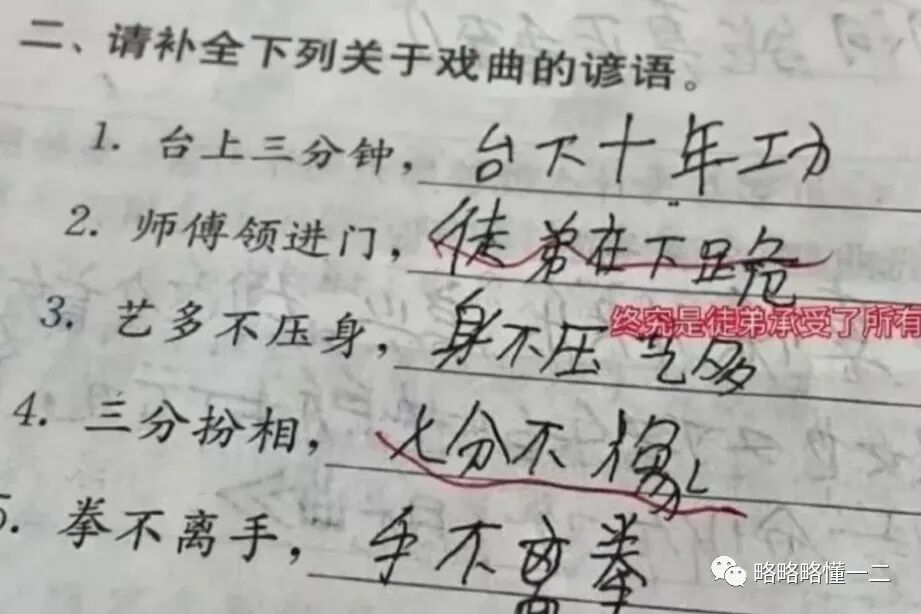 二、请补全下列关于戏曲的谚语。
1. 台上三分钟，台下十年功
2. 师傅领进门，徒弟在下跪
终究是徒弟承受了所有
3. 艺多不压身，身不压艺多
4. 三分扮相，七分不像
5. 拳不离手，手不离拳
略略略懂一二